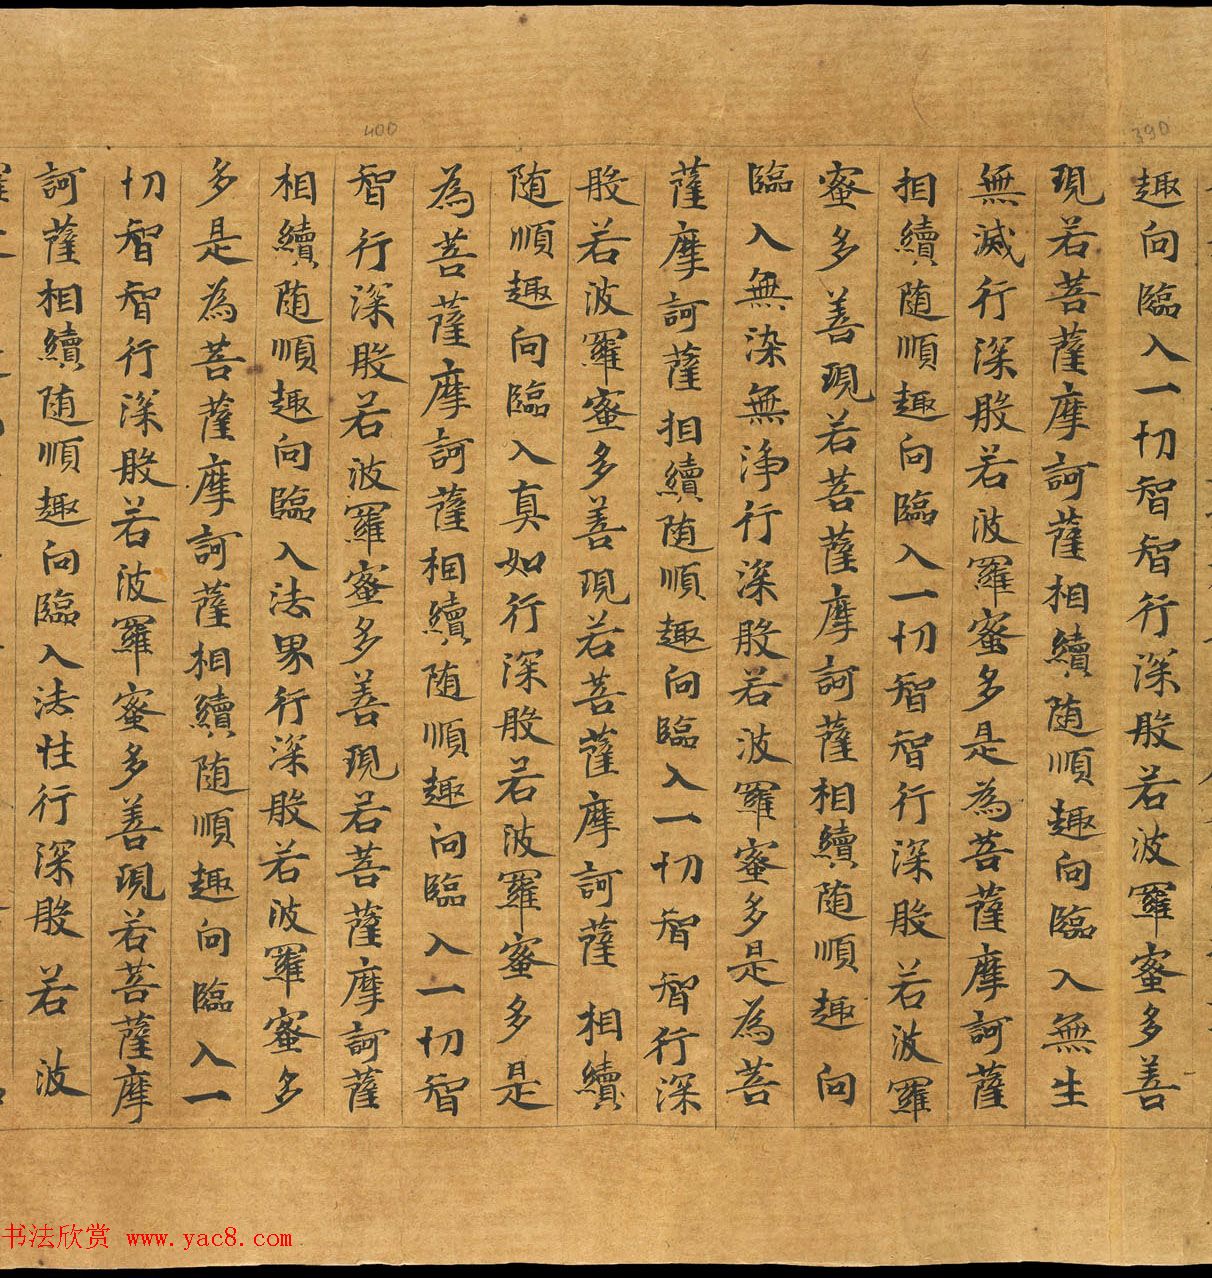 390
400
趣向臨入一切智智行深般若波羅蜜多善
現若菩薩摩訶薩相續随順趣向臨入無生
無滅行深般若波羅蜜多是為菩薩摩訶薩
相續随順趣向臨入一切智智行深般若波羅
蜜多善現若菩薩摩訶薩相續随順趣向
臨入無染無浄行深般若波羅蜜多是為菩
薩摩訶薩相續随順趣向臨入一切智智行深
般若波羅蜜多善現若菩薩摩訶薩相續
随順趣向臨入真如行深般若波羅蜜多是
為菩薩摩訶薩相續随順趣向臨入一切智
智行深般若波羅蜜多善現若菩薩摩訶薩
相續随順趣向臨入法界行深般若波羅蜜多
多是為菩薩摩訶薩相續随順趣向臨入一
切智智行深般若波羅蜜多善現若菩薩摩
訶薩相續随順趣向臨入法性行深般若波
书法欣赏 www.yac8.com